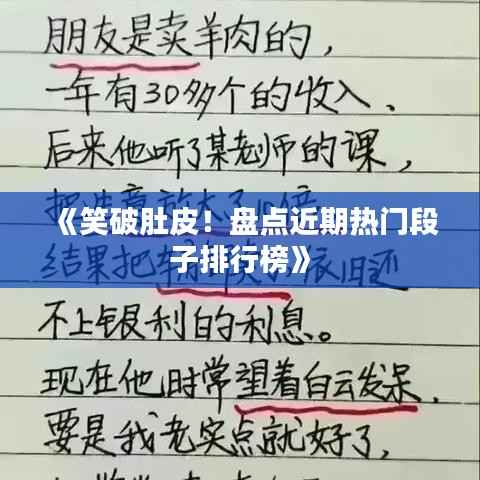 朋友是卖羊肉的，
一年有30多个的收入、
后来他听了某老师的课，
把生意放大了10倍
《笑破肚皮！盘点近期热门段
子排行榜》
结果把
依旧还
不上银利的利息。
现在他时常望着白云发呆，
要是我老实点就好了，